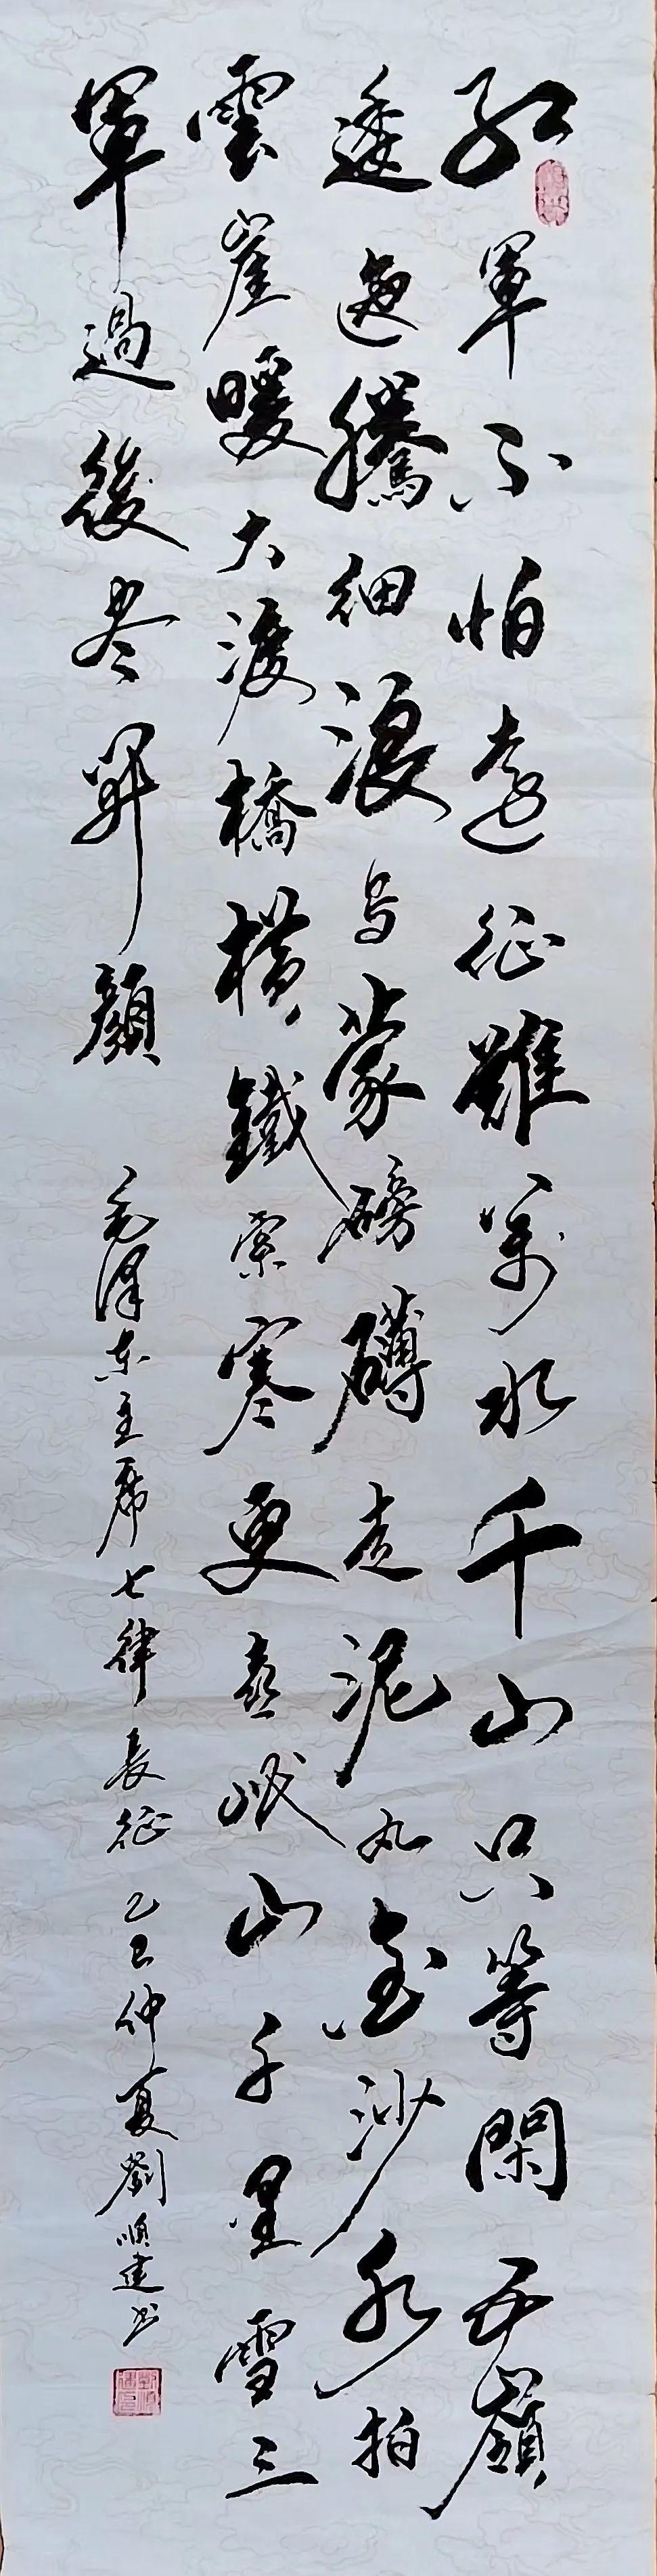 红軍不怕遠征難萬水千山只等閑五嶺
逶迤騰細浪烏蒙磅礴走泥丸金沙水拍
雲崖暖大渡橋横鐵索寒更喜岷山千里雪三
軍過後尽開顏
毛澤东主席七律長征乙巳仲夏劉順建书